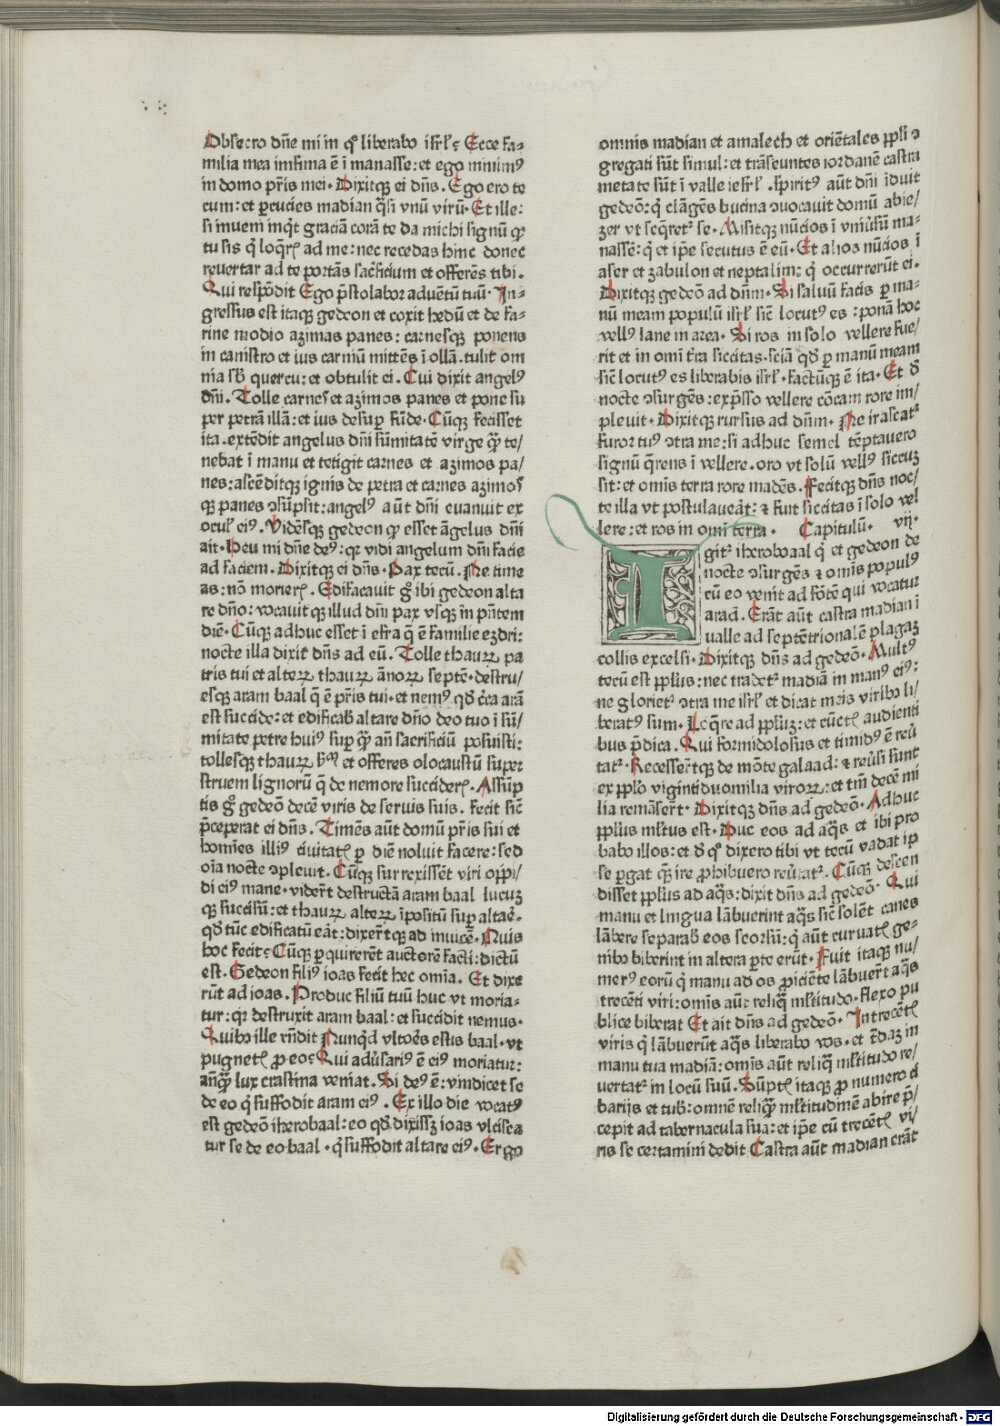 Obsecro dñe mi in qͦ liberabo isrl̓ ꝭ Ecce fa⸗
milia mea infima ē ĩ manasse: et ego minimꝰ
in domo pr̃is mei. Dixitqꝫ ei dñs. Ego ero te
cum: et ꝑcucies madian q̃si vnũ virũ. Et ille:
si inveni inqͥt graciã corã te da michi signũ ꝙ
tu sis q̇ loqr̃ꝭ ad me: nec recedas hinc donec
revertar ad te portãs sac̃ficium et offerẽs tibi.
Qui respõdit Ego p̃stolabor adventũ tuũ. In⸗
gressus est itaqꝫ gedeon et coxit hedũ et de fa⸗
rine modio azimas panes: carnesqꝫ ponens
in canistro et ius carniũ mittẽs ĩ ollã. tulit om
nia sb̃ quercu: et obtulit ei. Cui dixit angelꝰ
dñi. Tolle carnes et azimos panes et pone su
per petrã illã: et ius desuꝑ fũde. Cũqꝫ fecisset
ita. extẽdit angelus dñi sũmitatẽ virge quã te/
nebat ĩ manu et tetigit carnes et azimos pa/
nes: ascẽditqꝫ ignis de petra et carnes azimos
qꝫ panes ꝯsũpsit: angelꝰ aũt dñi evanuit ex
ocul̓ eiꝰ. Vidẽsqꝫ gedeon ꝙ esset ãgelus dñi
ait. Heu mi dñe deꝰ: qꝛ vidi angelum dñi facie
ad faciem. Dixitqꝫ ei dñs. Pax tecũ. Ne time
as: nõ morierꝭ. Edificavit gͦ ibi gedeon alta
re dño: vocavitqꝫ illud dñi pax vsqꝫ in p̃ntem
diẽ. Cũqꝫ adhuc esset ĩ efra q̃ ẽ familie ezdri:
nocte illa dixit dñs ad eũ. Tolle thauꝝ pa
tris tui et alteꝝ thauꝝ ãnoꝝ septẽ. destru/
esqꝫ aram baal q̃ ẽ pr̃is tui. et nemꝰ qd̃ c̃ca arã
est succide: et edificab̃ altare dño deo tuo ĩ sũ/
mitate petre huiꝰ suꝑ q̃ ãñ sacrificiũ posuisti:
tollesqꝫ thauꝝ et offeres olocaustũ super
struem lignorũ q̃ de nemore succiderꝭ. Assũp
tis gͦ gedeõ decẽ viris de seruis suis. fecit sic̃
p̃ceperat ei dñs. Timẽs aũt domũ pr̃is sui et
homĩes illiꝰ civitatꝭ ꝑ diẽ noluit facere: sed
oĩa nocte ꝯplevit. Cũqꝫ surrexissẽt viri oppi/
di eiꝰ mane. viderũt destructã aram baal lucuꝫ
qꝫ succisũ: et thauꝝ alteꝝ ĩpositũ suꝑ altaẽ.
qd̃ tũc edificatũ eãt: dixer̃tqꝫ ad invicẽ. Quis
hoc fecit ꝭ Cũqꝫ ꝑquirerẽt auctorẽ facti: dictũ
est. Gedeon filiꝰ ioas fecit hec omĩa. Et dixe
rũt ad ioas. Produc filiũ tuũ huc vt moria⸗
tur: qꝛ destruxit aram baal: et succidit nemus.
Quibꝰ ille rñdit Nunqͥd vltoẽs estis baal. vt
pugnetꝭ ꝓ eo ꝭ Qui adũsariꝰ ẽ eiꝰ moriatur:
ãñqͣ̃ lux crastina veniat. Si deꝰ ẽ: vindicet se
de eo q̇ suffodit aram eiꝰ. Ex illo die vocatꝰ
est gedeõ iherobaal: eo qd̃ dixissꝫ ioas vlcisca
tur se de eo baal. q̇ suffodit altare eiꝰ. Ergo
omnis madian et amalech et oriẽtales ppl̓i ꝯ
gregati sũt simul: et trãseuntes iordanẽ castra
metate sũt ĩ valle iesrl̓. spiritꝰ aũt dñi ĩduit
gedeõ: q̇ clãgẽs bucina ꝯuocavit domũ abie/
zer vt seq̃retꝛ se. Misitqꝫ nũcios ĩ vniũsũ ma⸗
nassẽ: q̇ et ip̃e secutus ẽ eũ. Et alios nũcios ĩ
aser et zabulon et neptalim: q̇ occurrerũt ei.
Dixitqꝫ gedeõ ad dñm. Si saluũ facis ꝑ ma⸗
nũ meam populũ isrl̓ sic̃ locutꝰ es: ponã hoc
vellꝰ lane in area. Si ros in solo vellere fue/
rit et in omĩ t̃ra siccitas. sciã qd̃ ꝑ manũ meam
sic̃ locutꝰ es liberabis isrl̓. Factũqꝫ ẽ ita. Et d̃
nocte ꝯsurgẽs: exp̃sso vellere cõcam rore im/
plevit. Dixitqꝫ rursus ad dñm. Ne irascatꝛ
furor tuꝰ ꝯtra me: si adhuc semel tẽptavero
signũ q̃rens ĩ vellere. oro vt solũ vellꝰ siccuꝫ
sit: et omĩs terra rore madẽs. Fecitqꝫ dñs noc/
te illa vt postulaveãt: ⁊ fuit siccitas ĩ solo vel
lere: et ros in omĩ terra. Capitulũ. vij.
Igitꝛ iherobaal q̇ et gedeon de
nocte ꝯsurgẽs ⁊ omĩs populꝰ
cũ eo venit ad fõtẽ qui vocatur
arad. Erãt aũt castra madian ĩ
ualle ad septẽtrionalẽ plagaꝫ
collis excelsi. Dixitqꝫ dñs ad gedeõ. Multꝰ
tecũ est pplus: nec tradetꝛ madiã in manꝰ eiꝰ:
ne glorietꝛ ꝯtra me isrl̓ et dicat meis viribꝰ li/
beratꝰ sum. Loq̃re ad ppl̓uꝫ: et cũctꝭ audienti
bus p̃dica. Qui formidolosus et timidꝰ ẽ reũ
tatꝛ. Recesser̃tqꝫ de mõte galaad: ⁊ reũsi sunt
ex ppl̓o viginti duo milia viroꝝ: et tm̃ decẽ mi
lia remãser̃t. Dixitqꝫ dñs ad gedeõ. Adhuc
ppl̓us ml̓tus est. Duc eos ad aq̃s et ibi pro
babo illos: et d̃ qͦ dixero tibi vt tecũ vadat ip̃
se pergat quẽ ire ꝓhibuero reũtatꝛ. Cũqꝫ descen
disset ppl̓us ad aq̃s: dixit dñs ad gedeõ. Qui
manu et lingua lãbuerint aq̃s sic̃ solẽt canes
lãbere separab̃ eos seorsũ: q̇ aũt curvatꝭ ge⸗
nibꝰ biberint in altera ꝑte erũt. Fuit itaqꝫ nu/
merꝰ eorũ q̇ manu ad os ꝓiciẽte lãbuer̃t aq̃s
trecẽti viri: omĩs aũt reliq̃ ml̓titudo. flexo pu
blice biberat Et ait dñs ad gedeõ. In trecẽtꝭ
viris q̇ lãbuerũt aq̃s liberabo vos. et t̃daꝫ in
manu tua madiã: omĩs aũt reliq̃ ml̓titudo re/
vertatꝛ in locũ suũ. Sũptꝭ itaqꝫ ꝓ numero ci
barijs et tub̃: omnẽ reliqͣ̃ ml̓titudinẽ abire p̃/
cepit ad tabernacula sua: et ip̃e cũ trecẽtꝭ vi/
ris se certamini dedit Castra aũt madian erãt
Digitalisierung gefördert durch die Deutsche Forschungsgemeinschaft - DFG